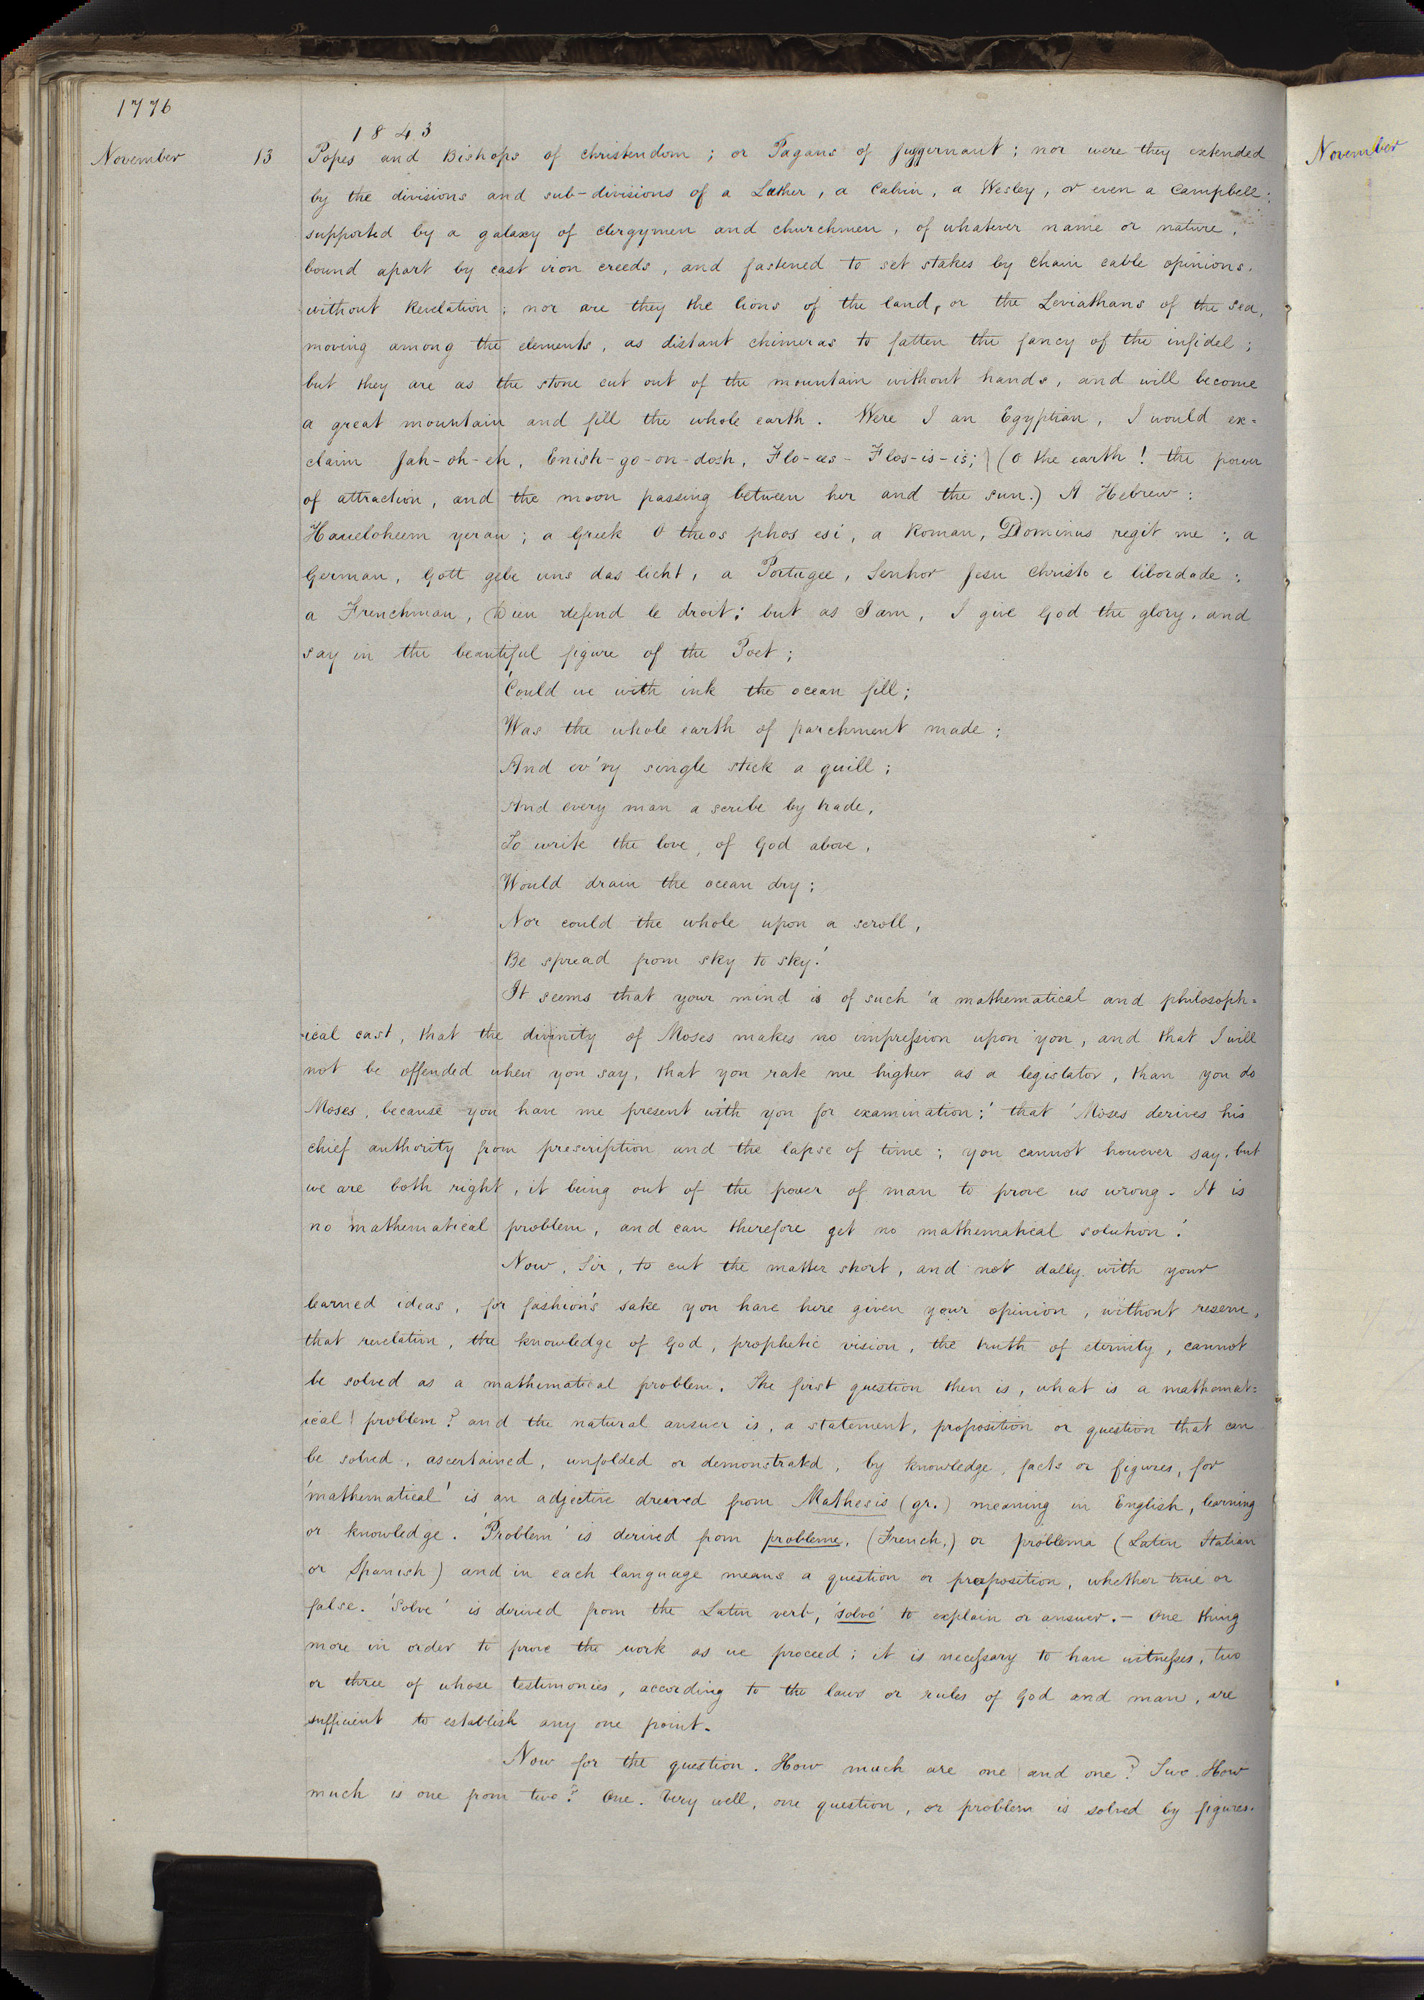 1776
1843
November 13 Popes and Bishops of christendom; or Pagans of Juggernaut; nor were they extended
November
by the divisions and sub-divisions of a Luther, a Calvin, a Wesley, or even a Campbell;
supported by a galaxy of clergymen and churchmen, of whatever name or nature,
bound apart by cast iron creeds, and fastened to set stakes by chain cable opinions,
without Revelation; nor are they the lions of the land, or the Leviathans of the sea,
moving among the elements, as distant chimeras to fatten the fancy of the infidel;
but they are as the stone cut out of the mountain without hands, and will become
a great mountain and fill the whole earth. Were I an Egyptian, I would ex-
claim Jah-oh-eh, Enish-go-on-dosh, Flo-ees-Flos-is-is; (O the earth! the power
of attraction, and the moon passing between her and the sun.) A Hebrew;
Haueloheem yerau; a Greek O theos phos esi, a Roman, Dominus regit me; a
German, Gott gebe uns das licht, a Portugee, Senhor Jesu Christo e libordade;
a Frenchman, Dieu defend le droit; but as I am, I give God the glory, and
say in the beautiful figure of the Poet;
'Could we with ink the ocean fill;
Was the whole earth of parchment made;
And ev'ry single stick a quill;
And every man a scribe by trade,
To write the love, of God above,
Would drain the ocean dry;
Nor could the whole upon a scroll,
Be spread from sky to sky.'
It seems that your mind is of such 'a mathematical and philosoph-
ical cast, that the divinity of Moses makes no impression upon you, and that I will
not be offended when you say, that you rate me higher as a legislator, than you do
Moses, because you have me present with you for examination;' that 'Moses derives his
chief authority from prescription and the lapse of time; you cannot however say, but
we are both right, it being out of the power of man to prove us wrong. It is
no mathematical problem, and can therefore get no mathematical solution.'
Now, Sir, to cut the matter short, and not dally with your
learned ideas, for fashion's sake you have here given your opinion, without reserve,
that revelation, the knowledge of God, prophetic vision, the truth of eternity, cannot
be solved as a mathematical problem. The first question then is, what is a mathemat-
ical problem? and the natural answer is, a statement, proposition or question that can
be solved, ascertained, unfolded or demonstrated, by knowledge, facts or figures, for
'mathematical' is an adjective derived from Mathesis (gr.) meaning in English, learning
or knowledge. 'Problem' is derived from probleme, (French,) or problema (Latin Italian
or Spanish) and in each language means a question or proposition, whether true or
false. 'Solve' is derived from the Latin verb, 'solvo' to explain or answer. — One thing
more in order to prove the work as we proceed; it is necessary to have witnesses, two
or three of whose testimonies, according to the laws or rules of God and man, are
sufficient to establish any one point.
Now for the question. How much are one and one? Two. How
much is one from two? One. Very well, one question, or problem is solved by figures.